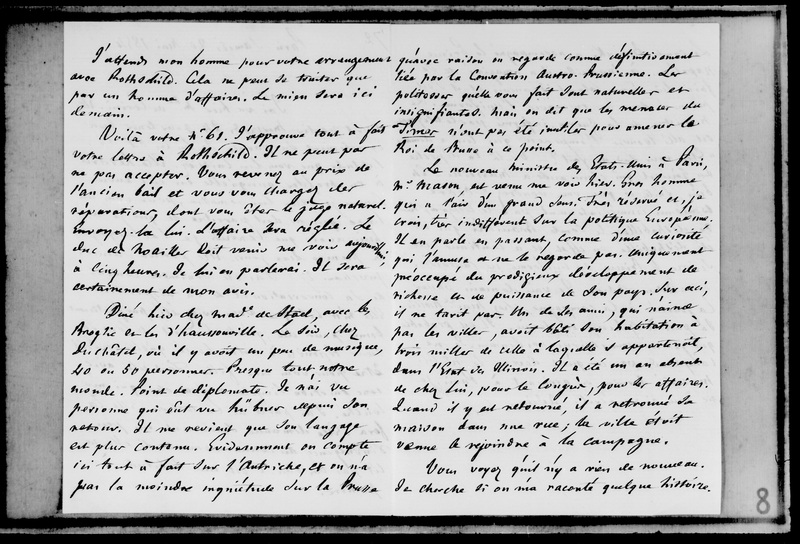 J'attends mon homme pour votre arrangement
avec Rothschild. Cela ne peut se traiter que
par un homme d'affaires. Le mien sera ici
demain.
Voilà votre n° 61. J'approuve tout à fait
votre lettre à Rothschild. Il ne peut pas
ne pas accepter. Vous revenez au prix de
l'ancien bail et vous vous chargez des
réparations, dont vous êtes le juge naturel.
Envoyez-la lui. L'affaire sera réglée. Le
duc de Noailles doit venir me voir aujourd'hui,
à cinq heures. Je lui en parlerai. Il sera
certainement de mon avis.
Diné hier chez mad. de Stael, avec les
Broglie et les d'haussonville. Le soir, chez
Duchâtel, où il y avoit un peu de musique,
40 ou 50 personnes. Presque tout notre
monde. Point de diplomate. Je n'ai vu
personne qui eût vu hübner depuis son
retour. Il me revient que son langage
est plus contenu. Evidemment on compte
ici tout à fait sur l'Autriche, et on n'a
pas la moindre inquiétude sur la Prusse
qu'avec raison on regarde comme définitivement
liée par la Convention Austro-Prussienne. Les
politesses qu'elle vous fait sont naturelles et
insignifiantes. Mais on dit que les menaces du
Times n'ont pas été inutiles pour amener le
Roi de Prusse à ce point.
Le nouveau ministre des Etats-Unis à Paris,
Mr Mason, est venu me voir hier. Gros homme
qui a l'air d'un grand sens. Très réservé et, je
crois, très indifférent sur la politique Européenne.
Il en parle en passant, comme d'une curiosité
qui l'amuse et ne le regarde pas. Uniquement
préoccupé du prodigieux développement de
richesse et de puissance de son pays. Sur ceci,
il ne tarit pas. Un de ses amis, qui n'aime
pas les villes, avoit bâti son habitation à
trois milles de celle à laquelle il appartenoit,
dans l'Etat des Illinois. Il a été un an absent
de chez lui, pour le Congrès, pour les affaires.
Quand il y est retourné, il a retrouvé sa
maison dans une rue; la ville étoit
venue le rejoindre à la campagne.
Vous voyez qu'il n'y a rien de nouveau.
Je cherche si on m'a raconté quelque histoire.
8